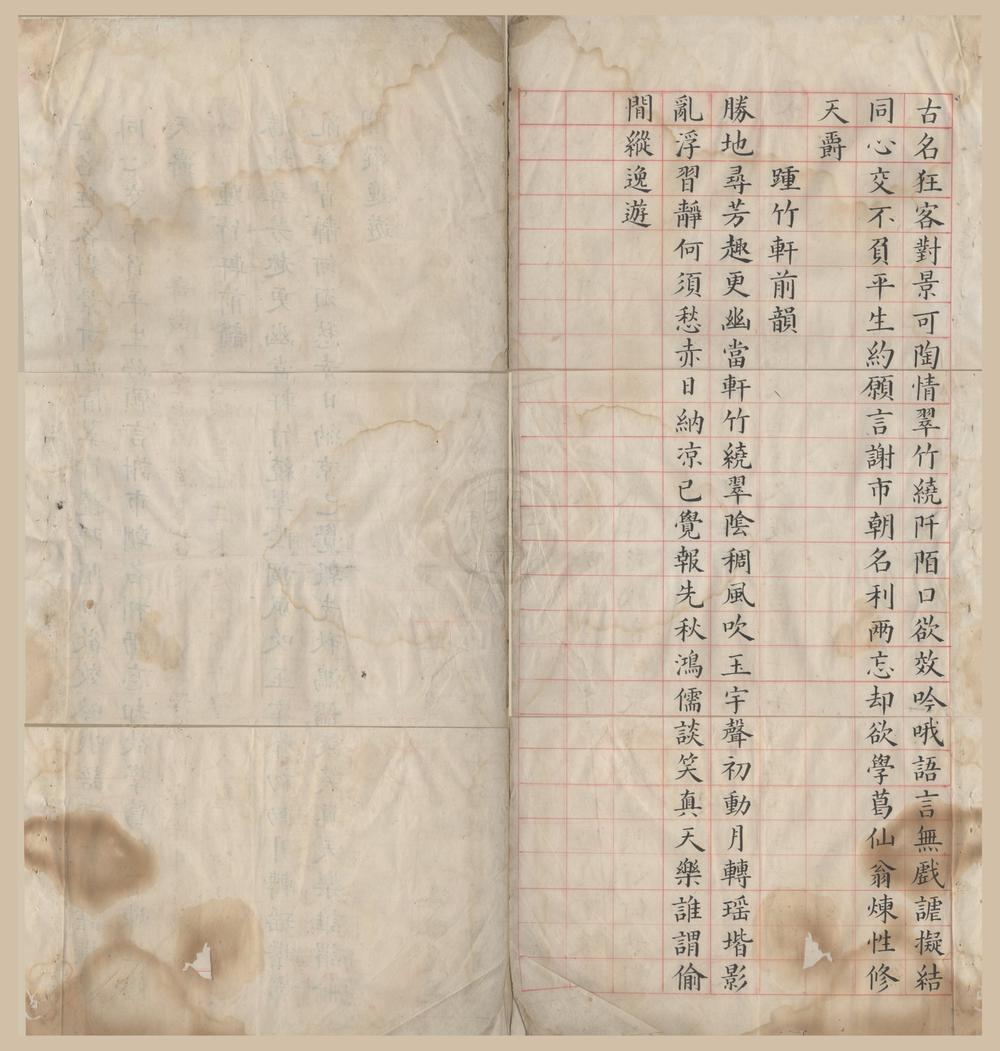 古名狂客對景可陶情翠竹繞阡陌口欲效吟哦語言無戲謔擬結
同心交不負平生約願言謝市朝名利兩忘却欲學葛仙翁煉性修
天爵
踵竹軒前韻
勝地尋芳趣更幽當軒竹繞翠陰稠風吹玉宇聲初動月轉瑶堦影
亂浮習靜何須愁赤日納凉已覺報先秋鴻儒談笑真天樂誰謂偷
閒縱逸遊